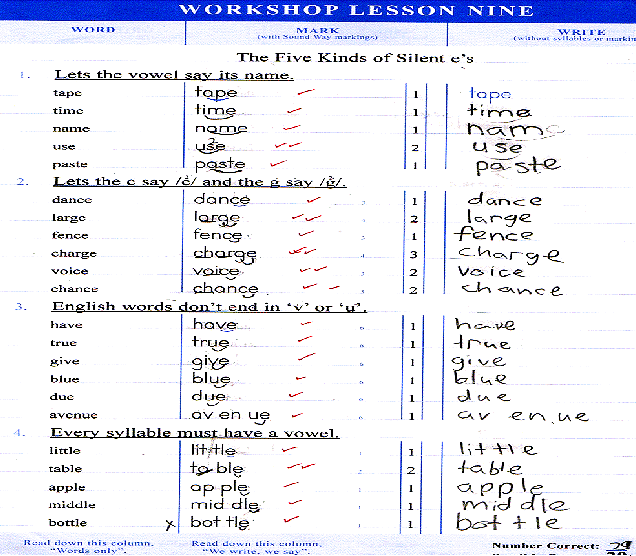 WORKSHOP LESSON NINE
WORD MARK WRITE
(with Sound Way markings) (without syllables or markin
The Five Kinds of Silent e's
1. Lets the vowel say its name.
tape tape 1 tape
time time 1 time
name name 1 name
use use 2 use
paste paste 1 paste
2. Lets the c say /c̀/ and the g say /ġ/.
dance dance 1 dance
large large 2 large
fence fence 1 fence
charge charge 3 charge
voice voice 2 voice
chance chance 2 chance
3. English words don't end in 'v' or 'u'.
have have 1 have
true true 1 true
give give 1 give
blue blue 1 blue
due due 1 due
avenue av en ue 1 av en ue
4. Every syllable must have a vowel.
little lit tle 1 little
table ta ble 2 table
apple ap ple 1 apple
middle mid dle 1 mid dle
bottle x bot tle 1 bot tle
Read down this column. Read down this column. Number Correct: 29
"Words only". "We write, we say".